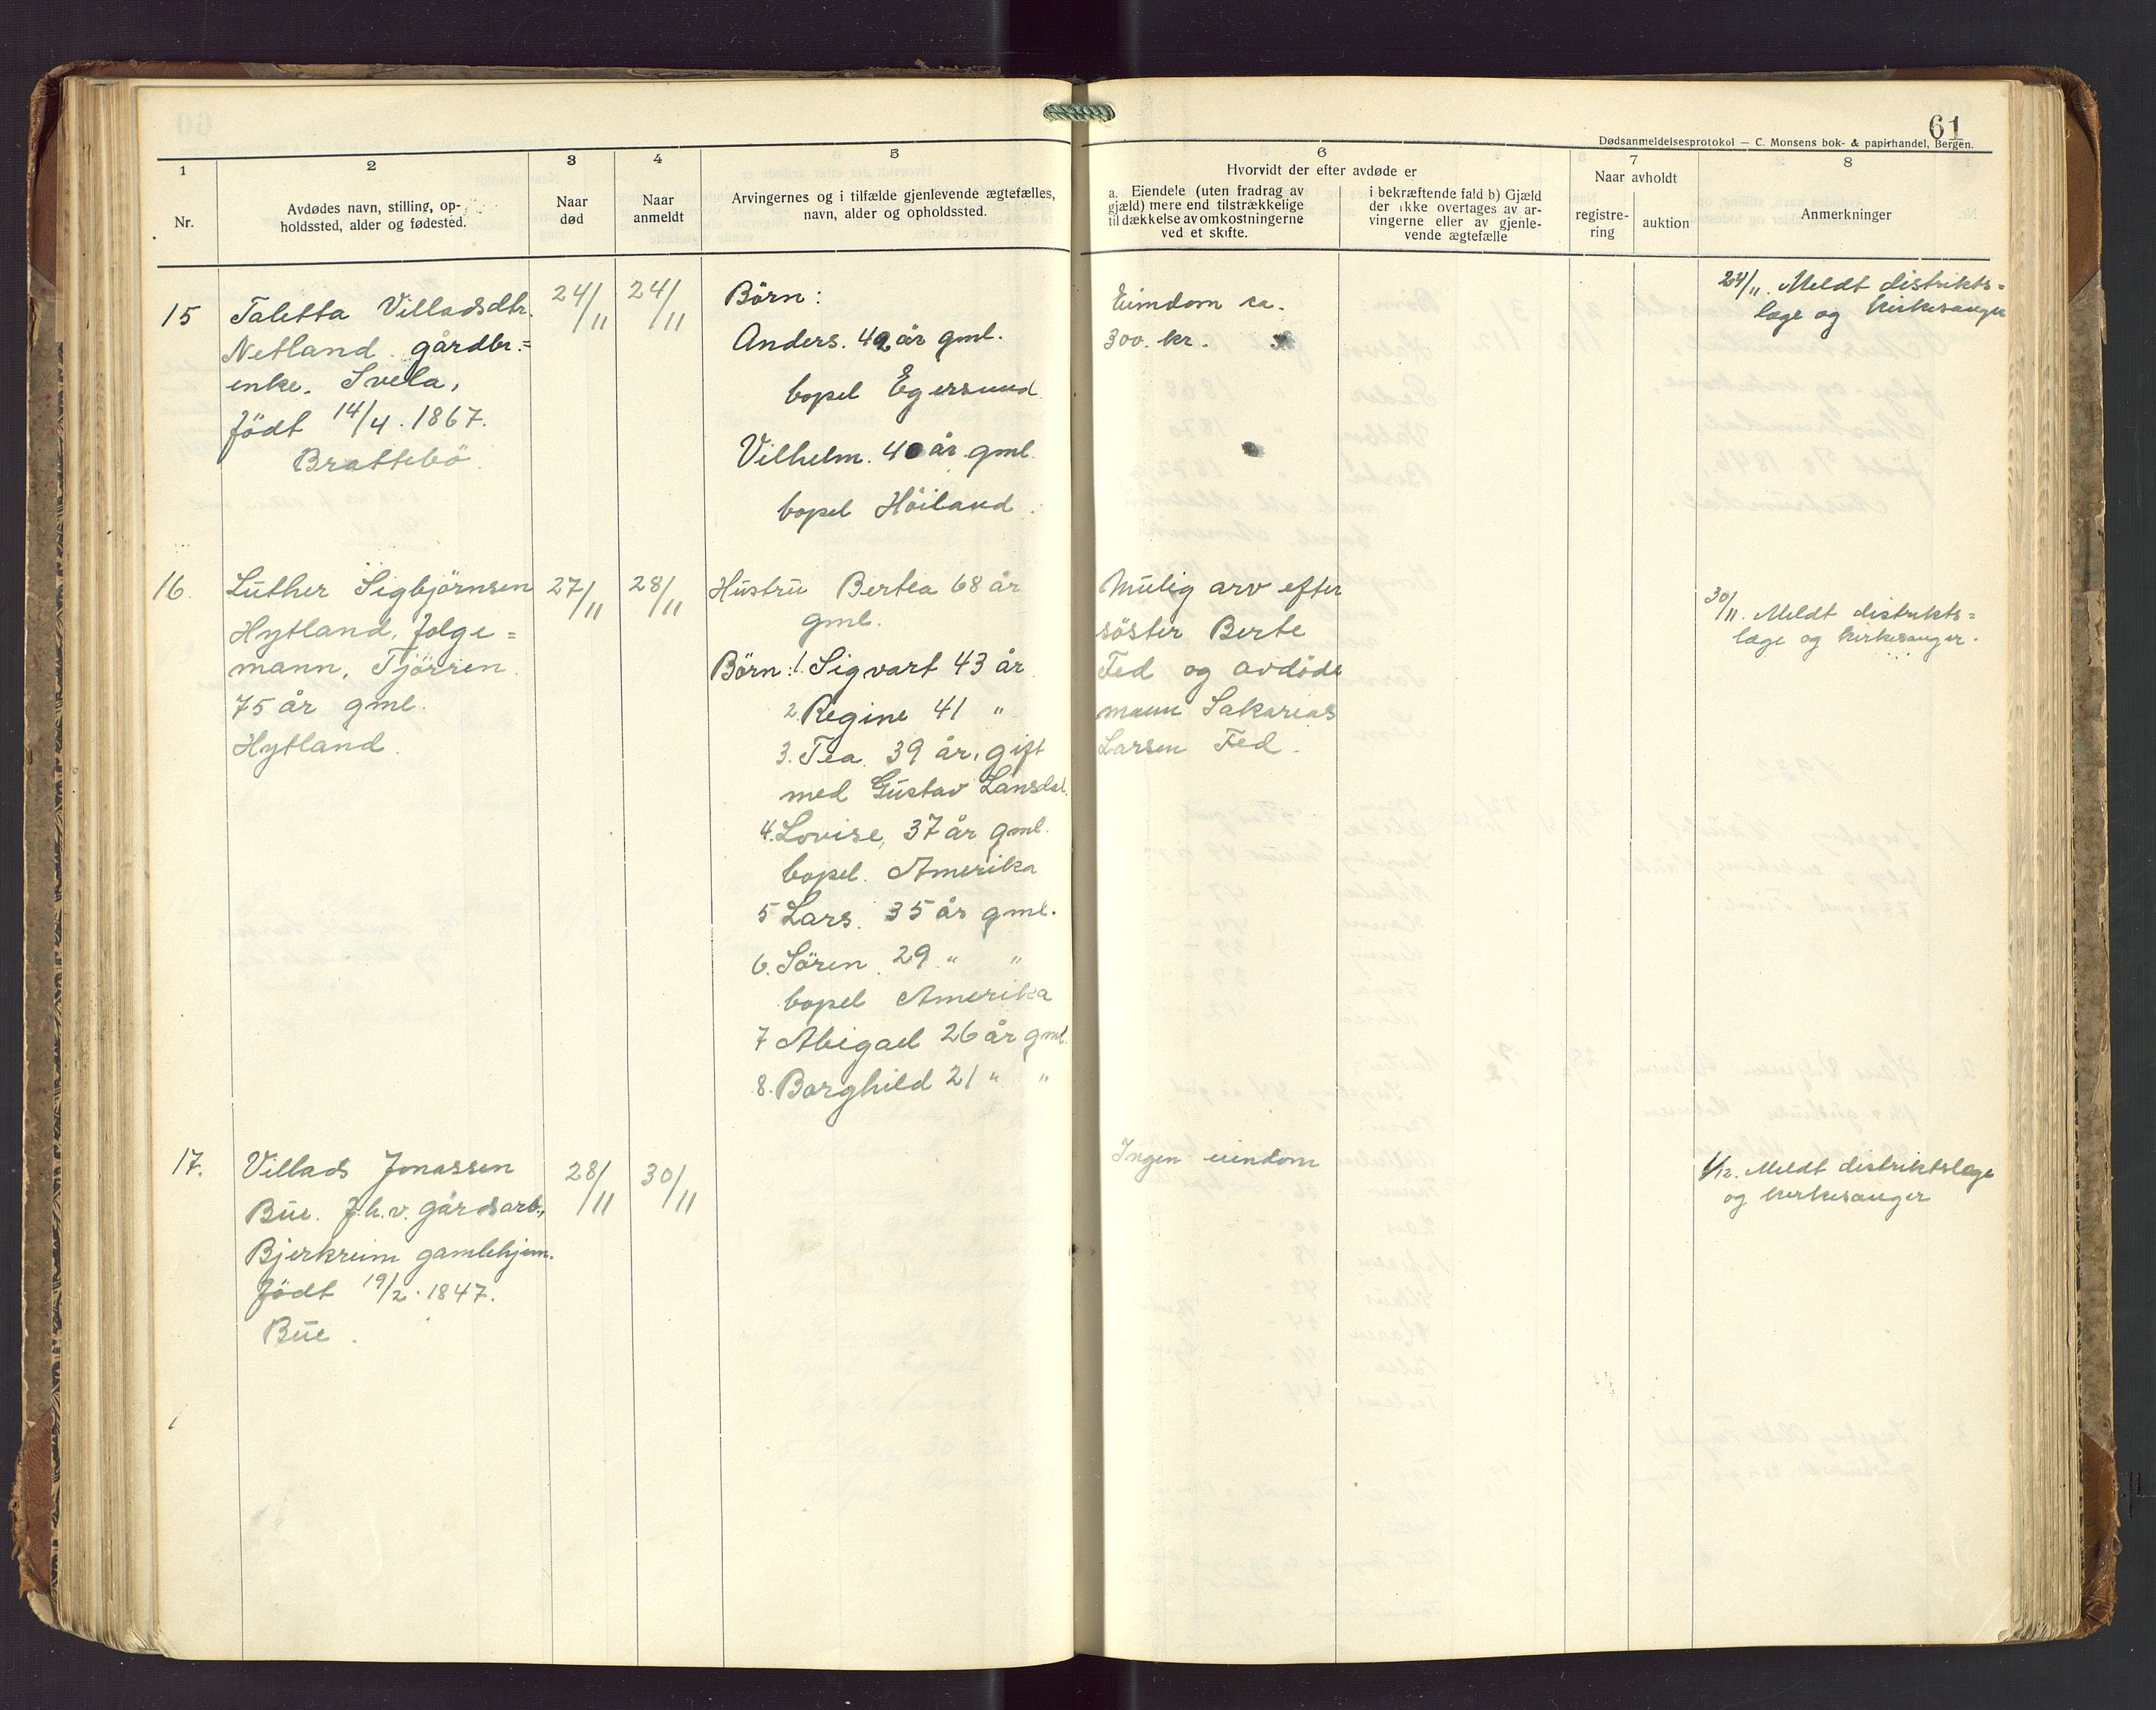 61
Dødsanmeldelsesprotokol — C. Monsens bok- & papirhandel, Bergen.
1
Nr.
2
Avdødes navn, stilling, op-
holdssted, alder og fødested.
3
Naar
død
4
Naar
anmeldt
5
Arvingernes og i tilfælde gjenlevende ægtefælles,
navn, alder og opholdssted.
6
Hvorvidt der efter avdøde er
a. Eiendele (uten fradrag av
gjæld) mere end tilstrækkelige
til dækkelse av omkostningerne
ved et skifte.
i bekræftende fald b) Gjæld
der ikke overtages av ar-
vingerne eller av gjenle-
vende ægtefælle
7
Naar avholdt
registre-
ring
auktion
8
Anmerkninger
15
Taletta Villadsdtr.
Netland gårdbr.=
enke. Svela,
født 14/4. 1867.
Brattebö.
24/11
24/11
Börn:
Anders. 42 år gml.
bopel Egersund
Vilhelm. 40 år gml.
bopel Höiland.
Eiendom ca.
300. kr.
24/11. Meldt distrikts=
læge og kirkesanger
16.
Luther Sigbjörnsen
Hytland, folge=
mann, Tjörren.
75 år gml.
Hytland.
27/11
28/11
Hustru Bertea 68 år
gml.
Börn: 1. Sigvart 43 år
2. Regine 41 "
3. Tea 39 år, gift
med Gustav Lansdal.
4. Lovise, 37 år gml.
bopel. Amerika
5 Lars. 35 år gml.
6. Sören. 29 " "
bopel Amerika
7 Abigael 26 år gml.
8. Borghild 21 " "
Mulig arv efter
söster Berte
Fed og avdöde
mann Sakarias
Larsen Fed.
30/11. Meldt distrikts=
læge og kirkesanger.
17.
Villads Jonassen
Bue. f.h.v. gårdsarb.,
Bjerkreim gamlehjem.
Födt 19/2. 1847.
Bue.
28/11
30/11
Ingen eiendom
1/12. Meldt distriktslæge
og kirkesanger